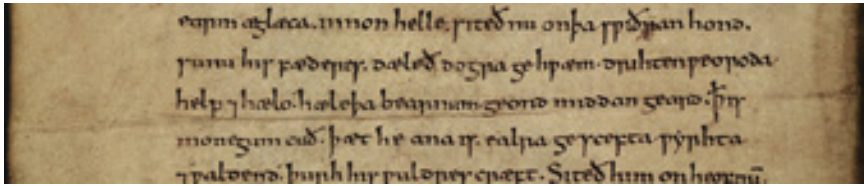 earm aglæca. innon helle. siteð nu onþa sƿiðran hond.
sunu his fæderes. dæleð dogra ge hƿæm. drihten ƿeoroda
help ⁊ hælo. hæleþa bearnum geond middan geard. ꝥ is
monegum cuð. þæt he ana is. ealra ge scefta ƿyrhta
⁊ ƿaldend. þurh his ƿuldres cræft. Siteð him on heofnū